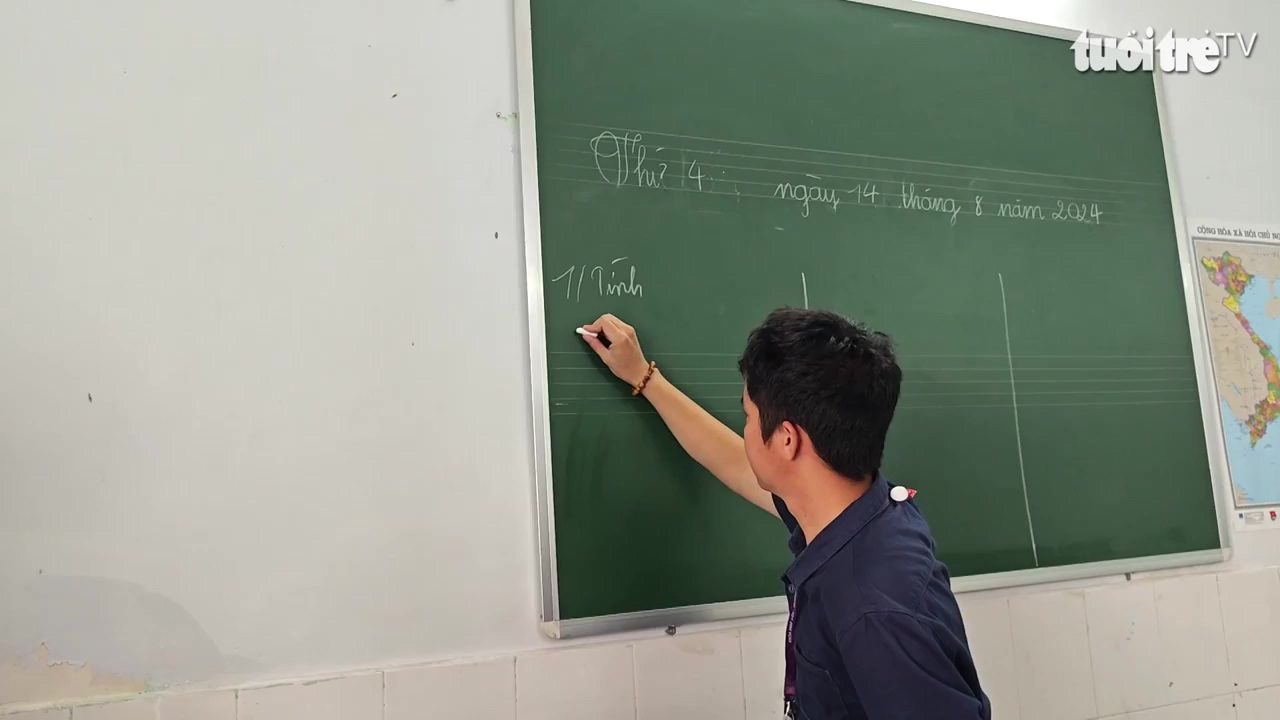 tuổi trẻ TV
Thứ 4 ngày 14 tháng 8 năm 2024
CỘNG HÒA XÃ HỘI CHỦ
1/ Tính